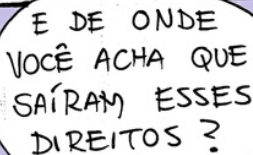 E DE ONDE
VOCÊ ACHA QUE
SAÍRAM ESSES
DIREITOS?